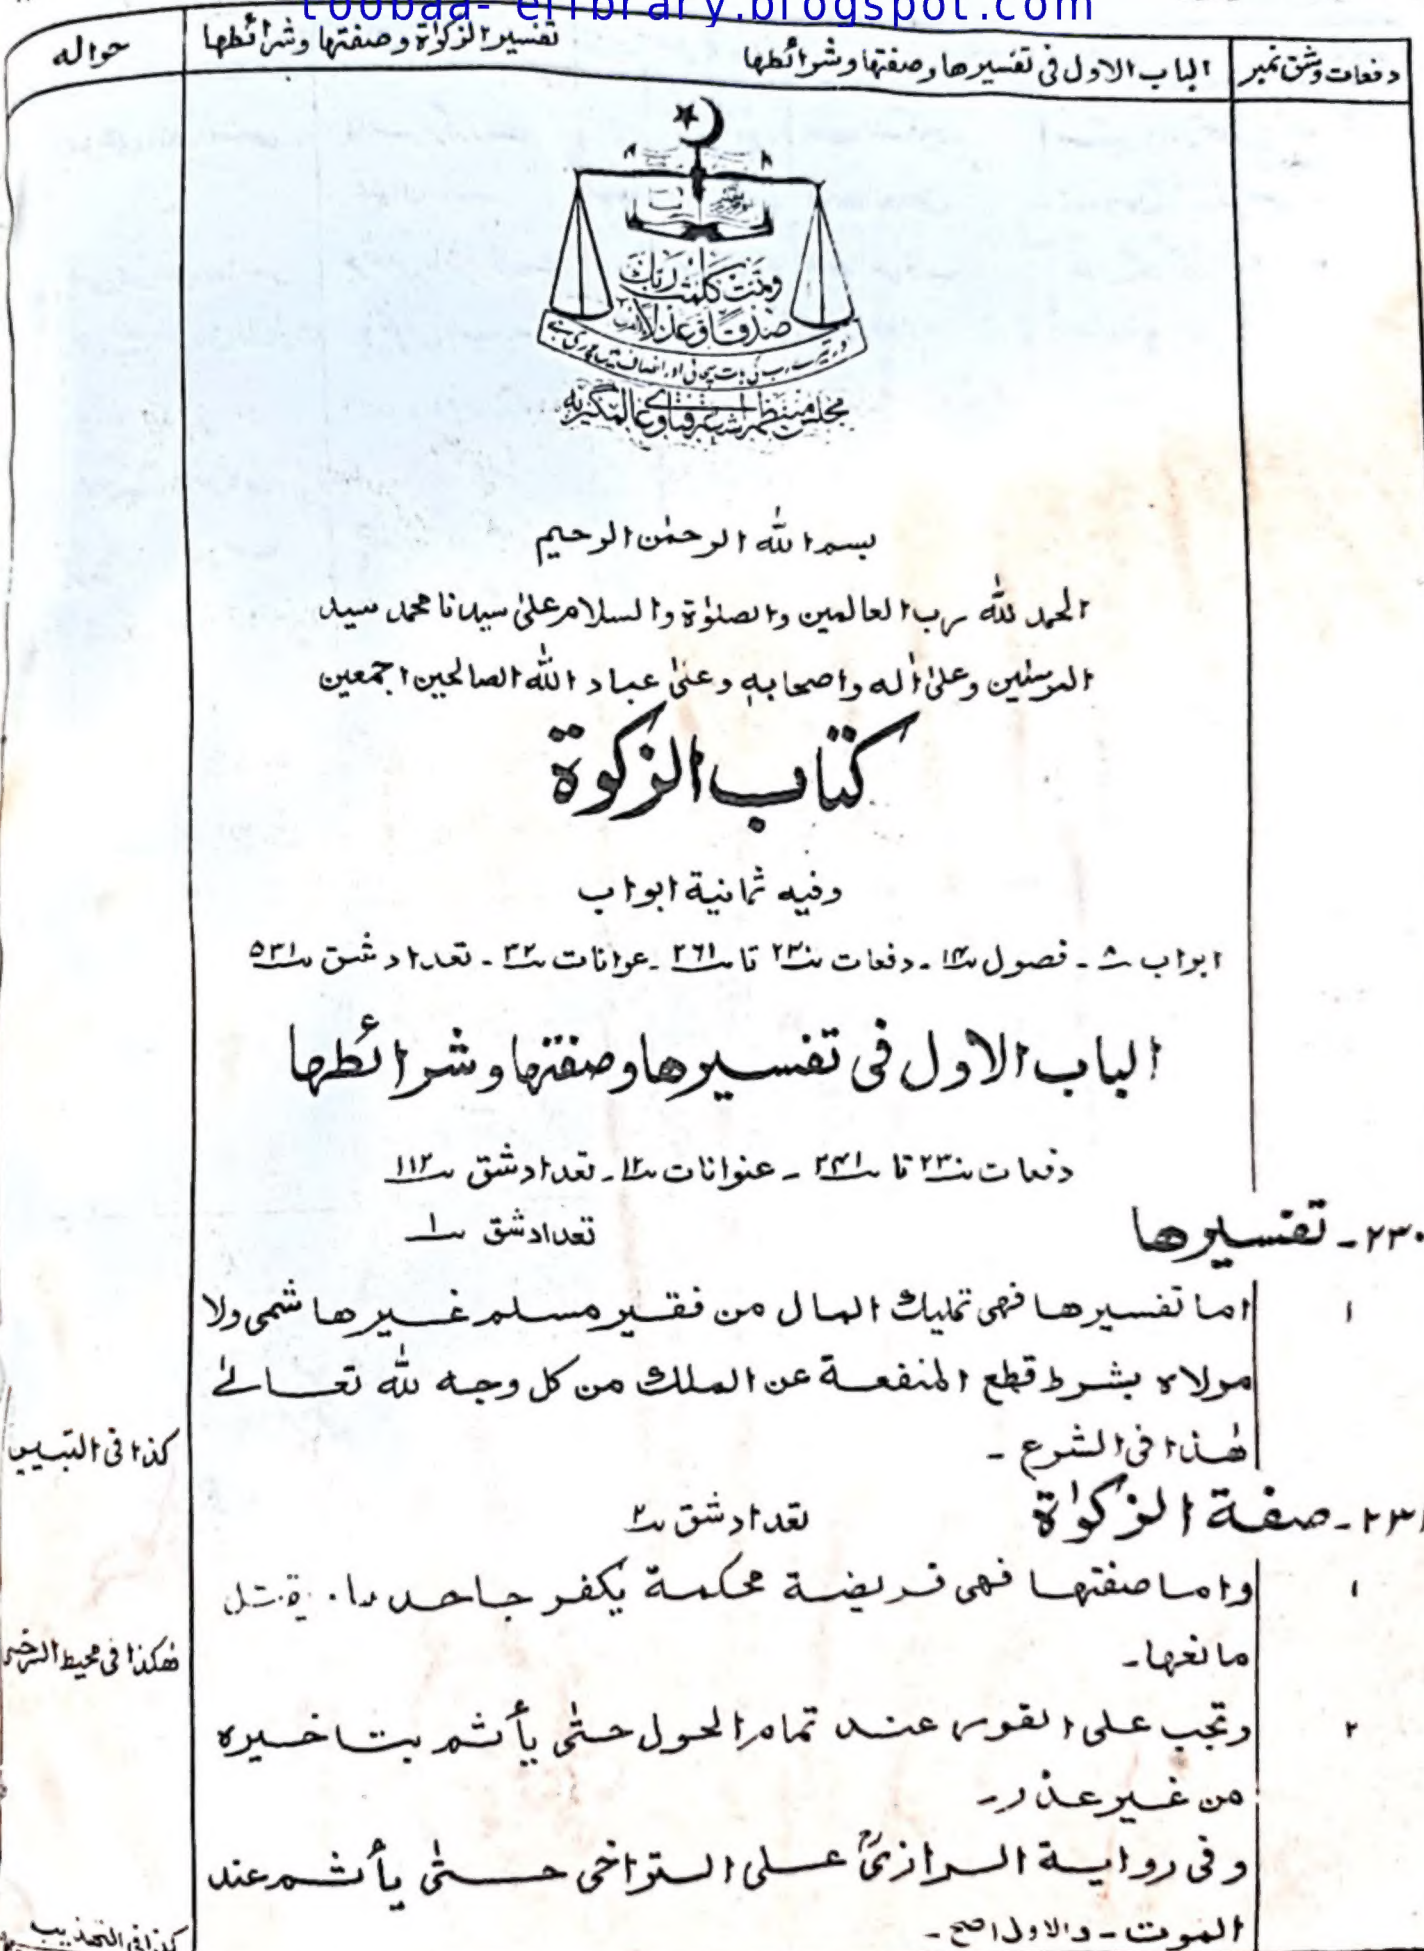 toobaa-elibrary.blogspot.com
دفعات وشق نمبر | الباب الاول فی تفسیرها وصفتها وشرائطها | تفسیر الزکوٰة وصفتها وشرائطها | حواله
وتمت کلمت ربك
صدقا وعدلا
بسم الله الرحمٰن الرحیم
الحمد لله رب العالمین والصلوٰة والسلام علیٰ سیدنا محمد سید
المرسلین وعلیٰ اٰله واصحابه وعلیٰ عباد الله الصالحین اجمعین
کتاب الزکوة
وفیه ثمانیة ابواب
ابواب ۸ ـ فصول ۱۴ ـ دفعات ۲۳۰ تا ۲۶۱ ـ عوانات ۳۲ ـ تعداد شق ۵۳۱
الباب الاول فی تفسیرها وصفتها وشرائطها
دفعات ۲۳۰ تا ۲۴۱ ـ عنوانات ۱۲ ـ تعداد شق ۱۱۲
۲۳۰ ـ تفسیرها تعداد شق ۱
۱ اما تفسیرها فهی تملیك المال من فقیر مسلم غیر هاشمی ولا
مولاه بشرط قطع المنفعة عن الملك من کل وجه لله تعالیٰ
هٰذا فی الشرع ـ کذا فی التبیین
۲۳۱ ـ صفة الزکوٰة تعداد شق ۲
۱ واما صفتها فهی فریضة محکمة یکفر جاحدها ویقتل
مانعها ـ هٰکذا فی محیط السرخسی
۲ وتجب علی الفور عند تمام الحول حتٰی یأثم بتاخیره
من غیر عذر ـ
وفی روایة الرازیؒ علی التراخی حتٰی یأثم عند
الموت ـ والاول اصح ـ کذا فی التهذیب